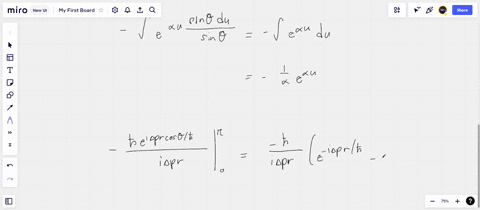 miro New UI My First Board Share
- ∫ e^{αu} sinθ du / sinθ = - ∫ e^{αu} du
= - 1/α e^{αu}
- ħ e^{iΔpr cosθ/ħ} / iΔpr |_0^π = -ħ / iΔpr ( e^{-iΔpr/ħ} -
- 75% + ?